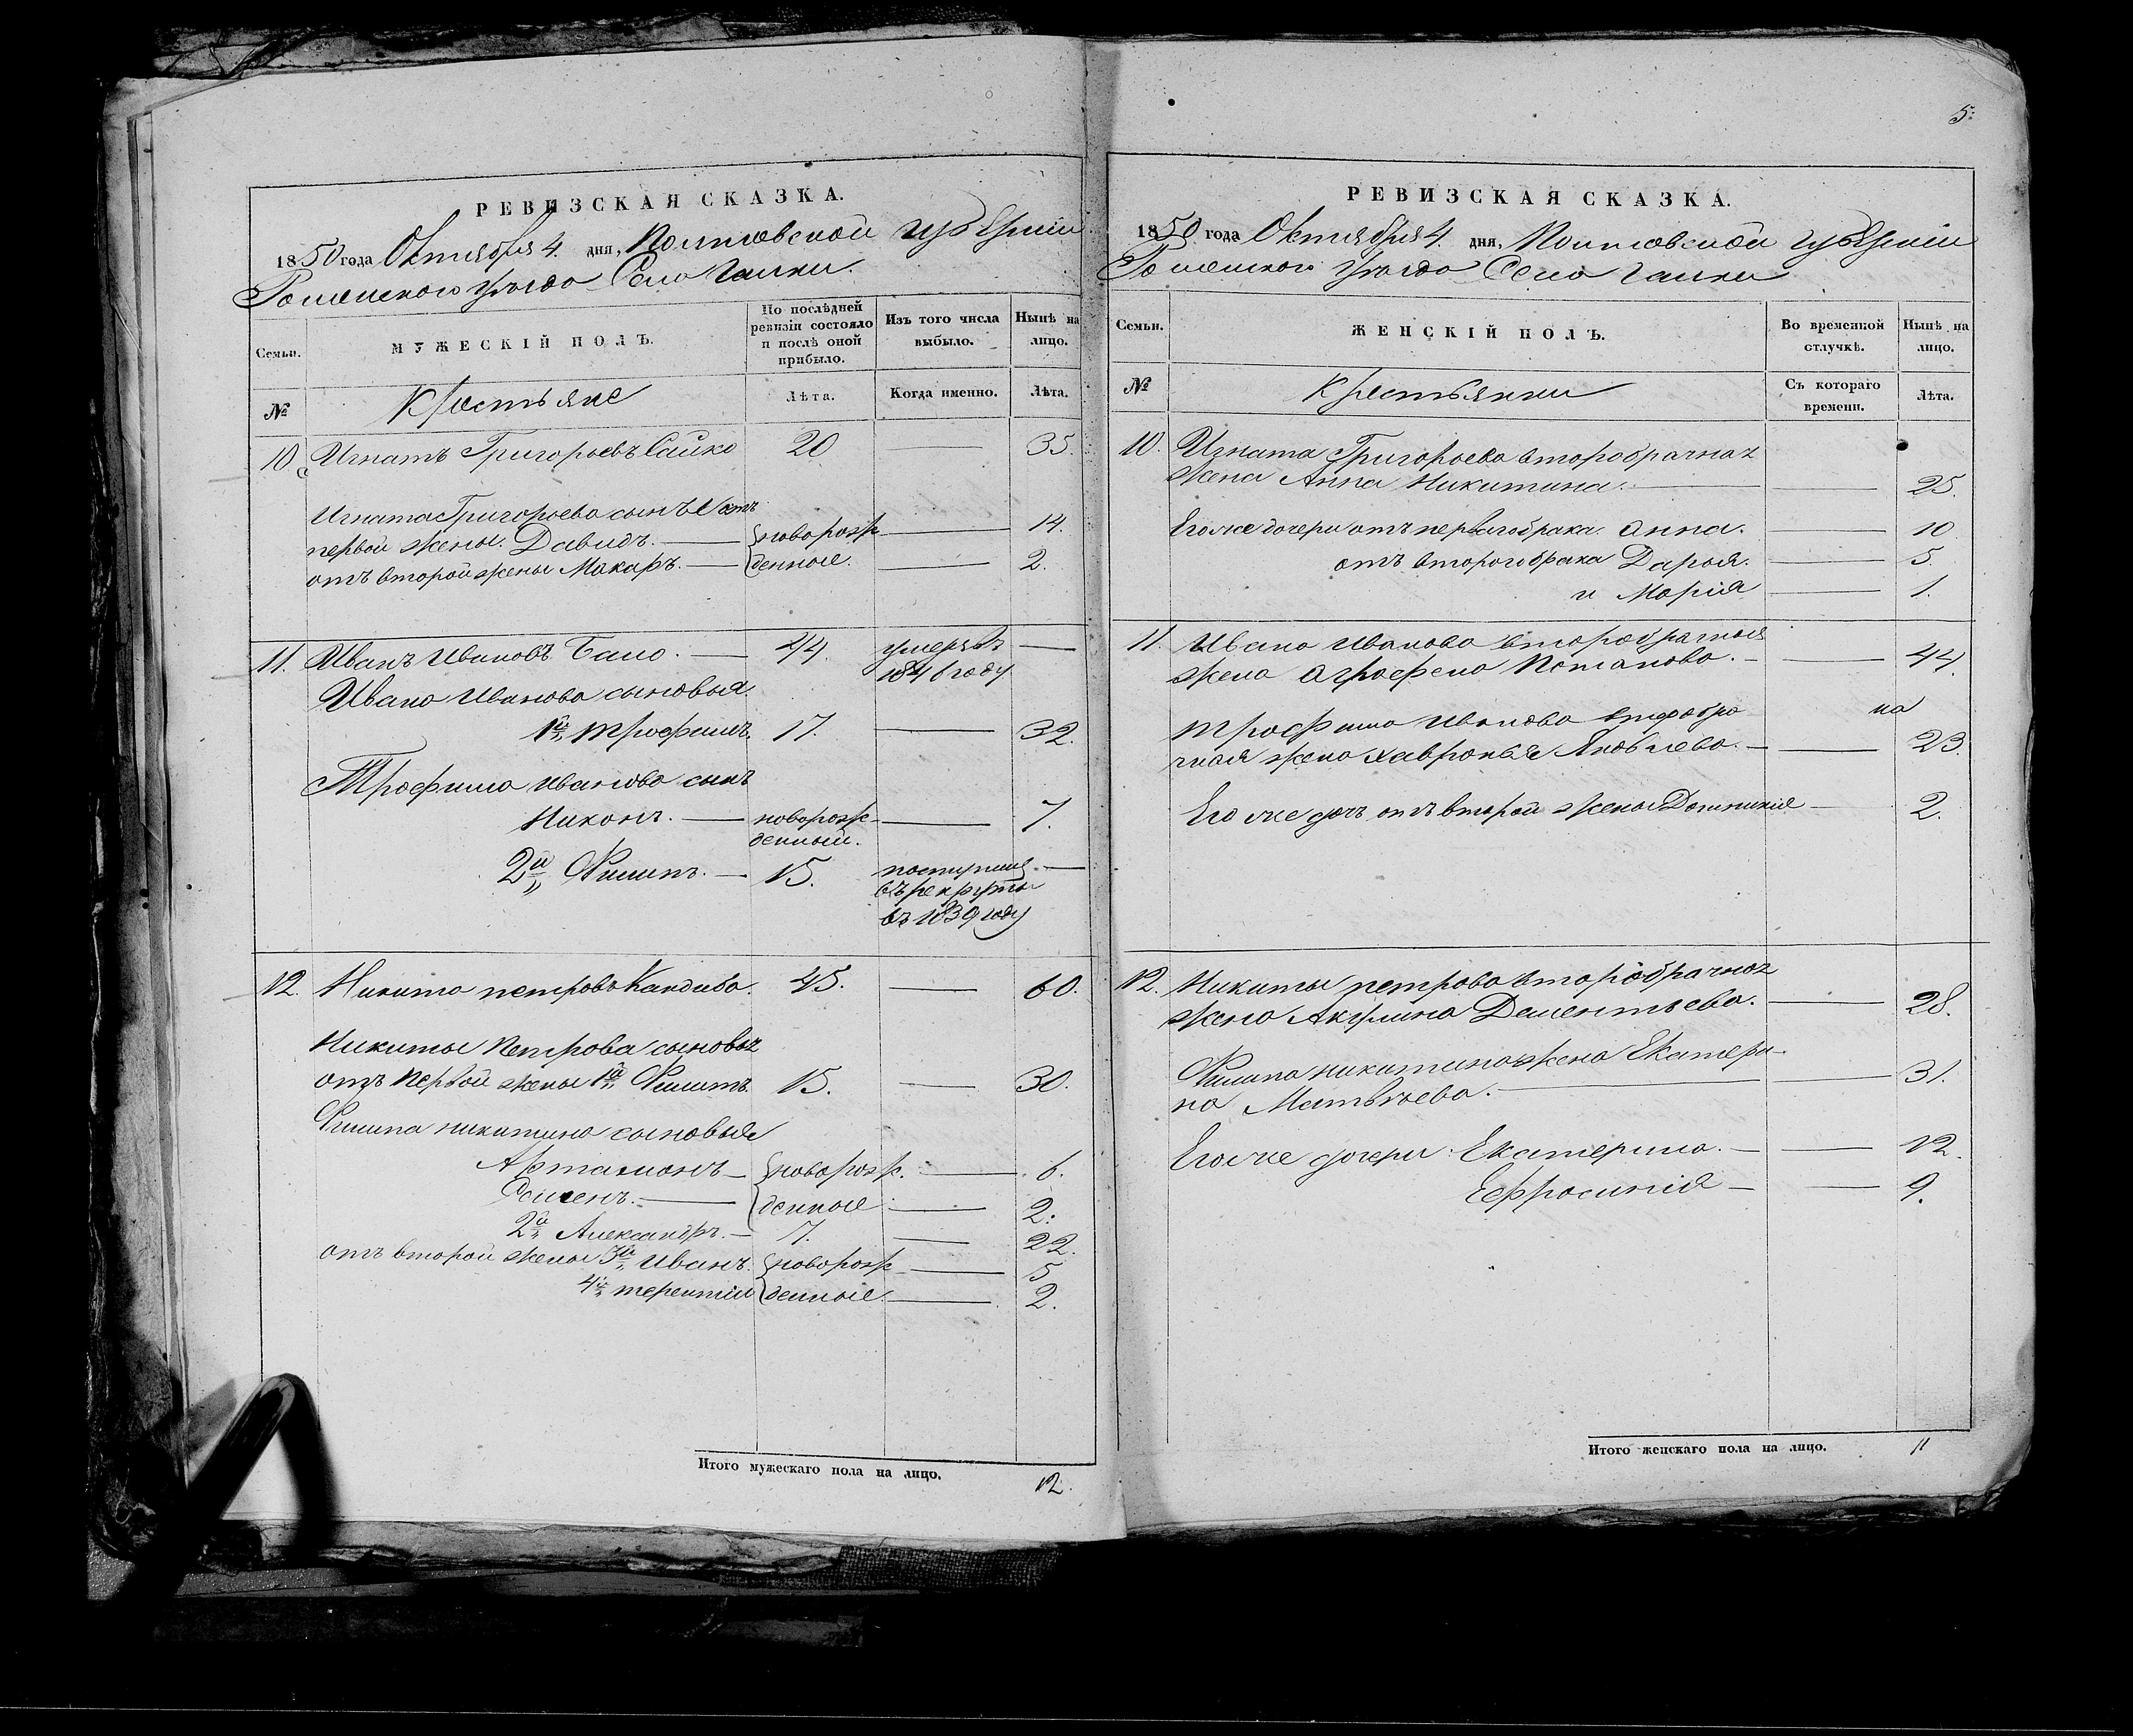 5.
РЕВИЗСКАЯ СКАЗКА.
1850 года Октября 4. дня, Полтавской губерніи
Роменского уѣзда Село Галки.
Семьи.
МУЖЕСКІЙ ПОЛЪ.
По послѣдней ревизіи состояло и послѣ оной прибыло.
Изъ того числа выбыло.
Нынѣ на лицо.
№
Крестьяне
Лѣта.
Когда именно.
Лѣта.
10. Игнатъ Григорьевъ Сайко 20 — 35.
Игната Григорьева сынъ отъ
первой жены. Давидъ. — новорож — 14.
отъ второй жены Макаръ. — денные. — 2.
11. Иванъ Ивановъ Бало. — 44. умеръ въ —
1846 году
Ивана Иванова сыновья
1й Трофимъ. 17. — 32.
Трофима Иванова сынъ
Никонъ. — новорож — 7.
денный.
2й Филипъ. — 15. поступилъ —
въ рекруты
въ 1839 году
12. Никита Петровъ Кандиба. 45. — 60.
Никиты Петрова сыновья
отъ первой жены 1й Филипъ 15. — 30.
Филипа Никитина сыновья
Артамонъ — новорож. — 6.
Семенъ. — денные — 2.
2й Александръ. — 7. — 22.
отъ второй жены 3й Иванъ. новорож — 5
4й Терентій денные — 2.
Итого мужескаго пола на лицо. 12.
РЕВИЗСКАЯ СКАЗКА.
1850 года Октября 4. дня, Полтавской губерніи
Роменского уѣзда Село Галки
Семьи.
ЖЕНСКІЙ ПОЛЪ.
Во временной отлучкѣ.
Нынѣ на лицо.
№
Крестьянки
Съ котораго времени.
Лѣта.
10. Игната Григорьева второбрачная
жена Анна Никитина. — — 25.
Его же дочери отъ перваго брака. Анна. — 10
отъ второго брака Дарья. — 5.
и Марія — 1.
11. Ивана Иванова второбрачная
жена Агрофена Потапова. — — 44.
Трофима Иванова второбра
на
чная жена Хавронья Яковлева. — — 23.
Его же дочь отъ второй жены Доминикія — 2.
12. Никиты Петрова второбрачная
жена Акулина Дементьева. — 28.
Филипа Никитина жена Екатери-
на Матвѣева. — — 31.
Его же дочери: Екатерина. — — 12.
Ефросинія — — 9.
Итого женскаго пола на лицо. 11